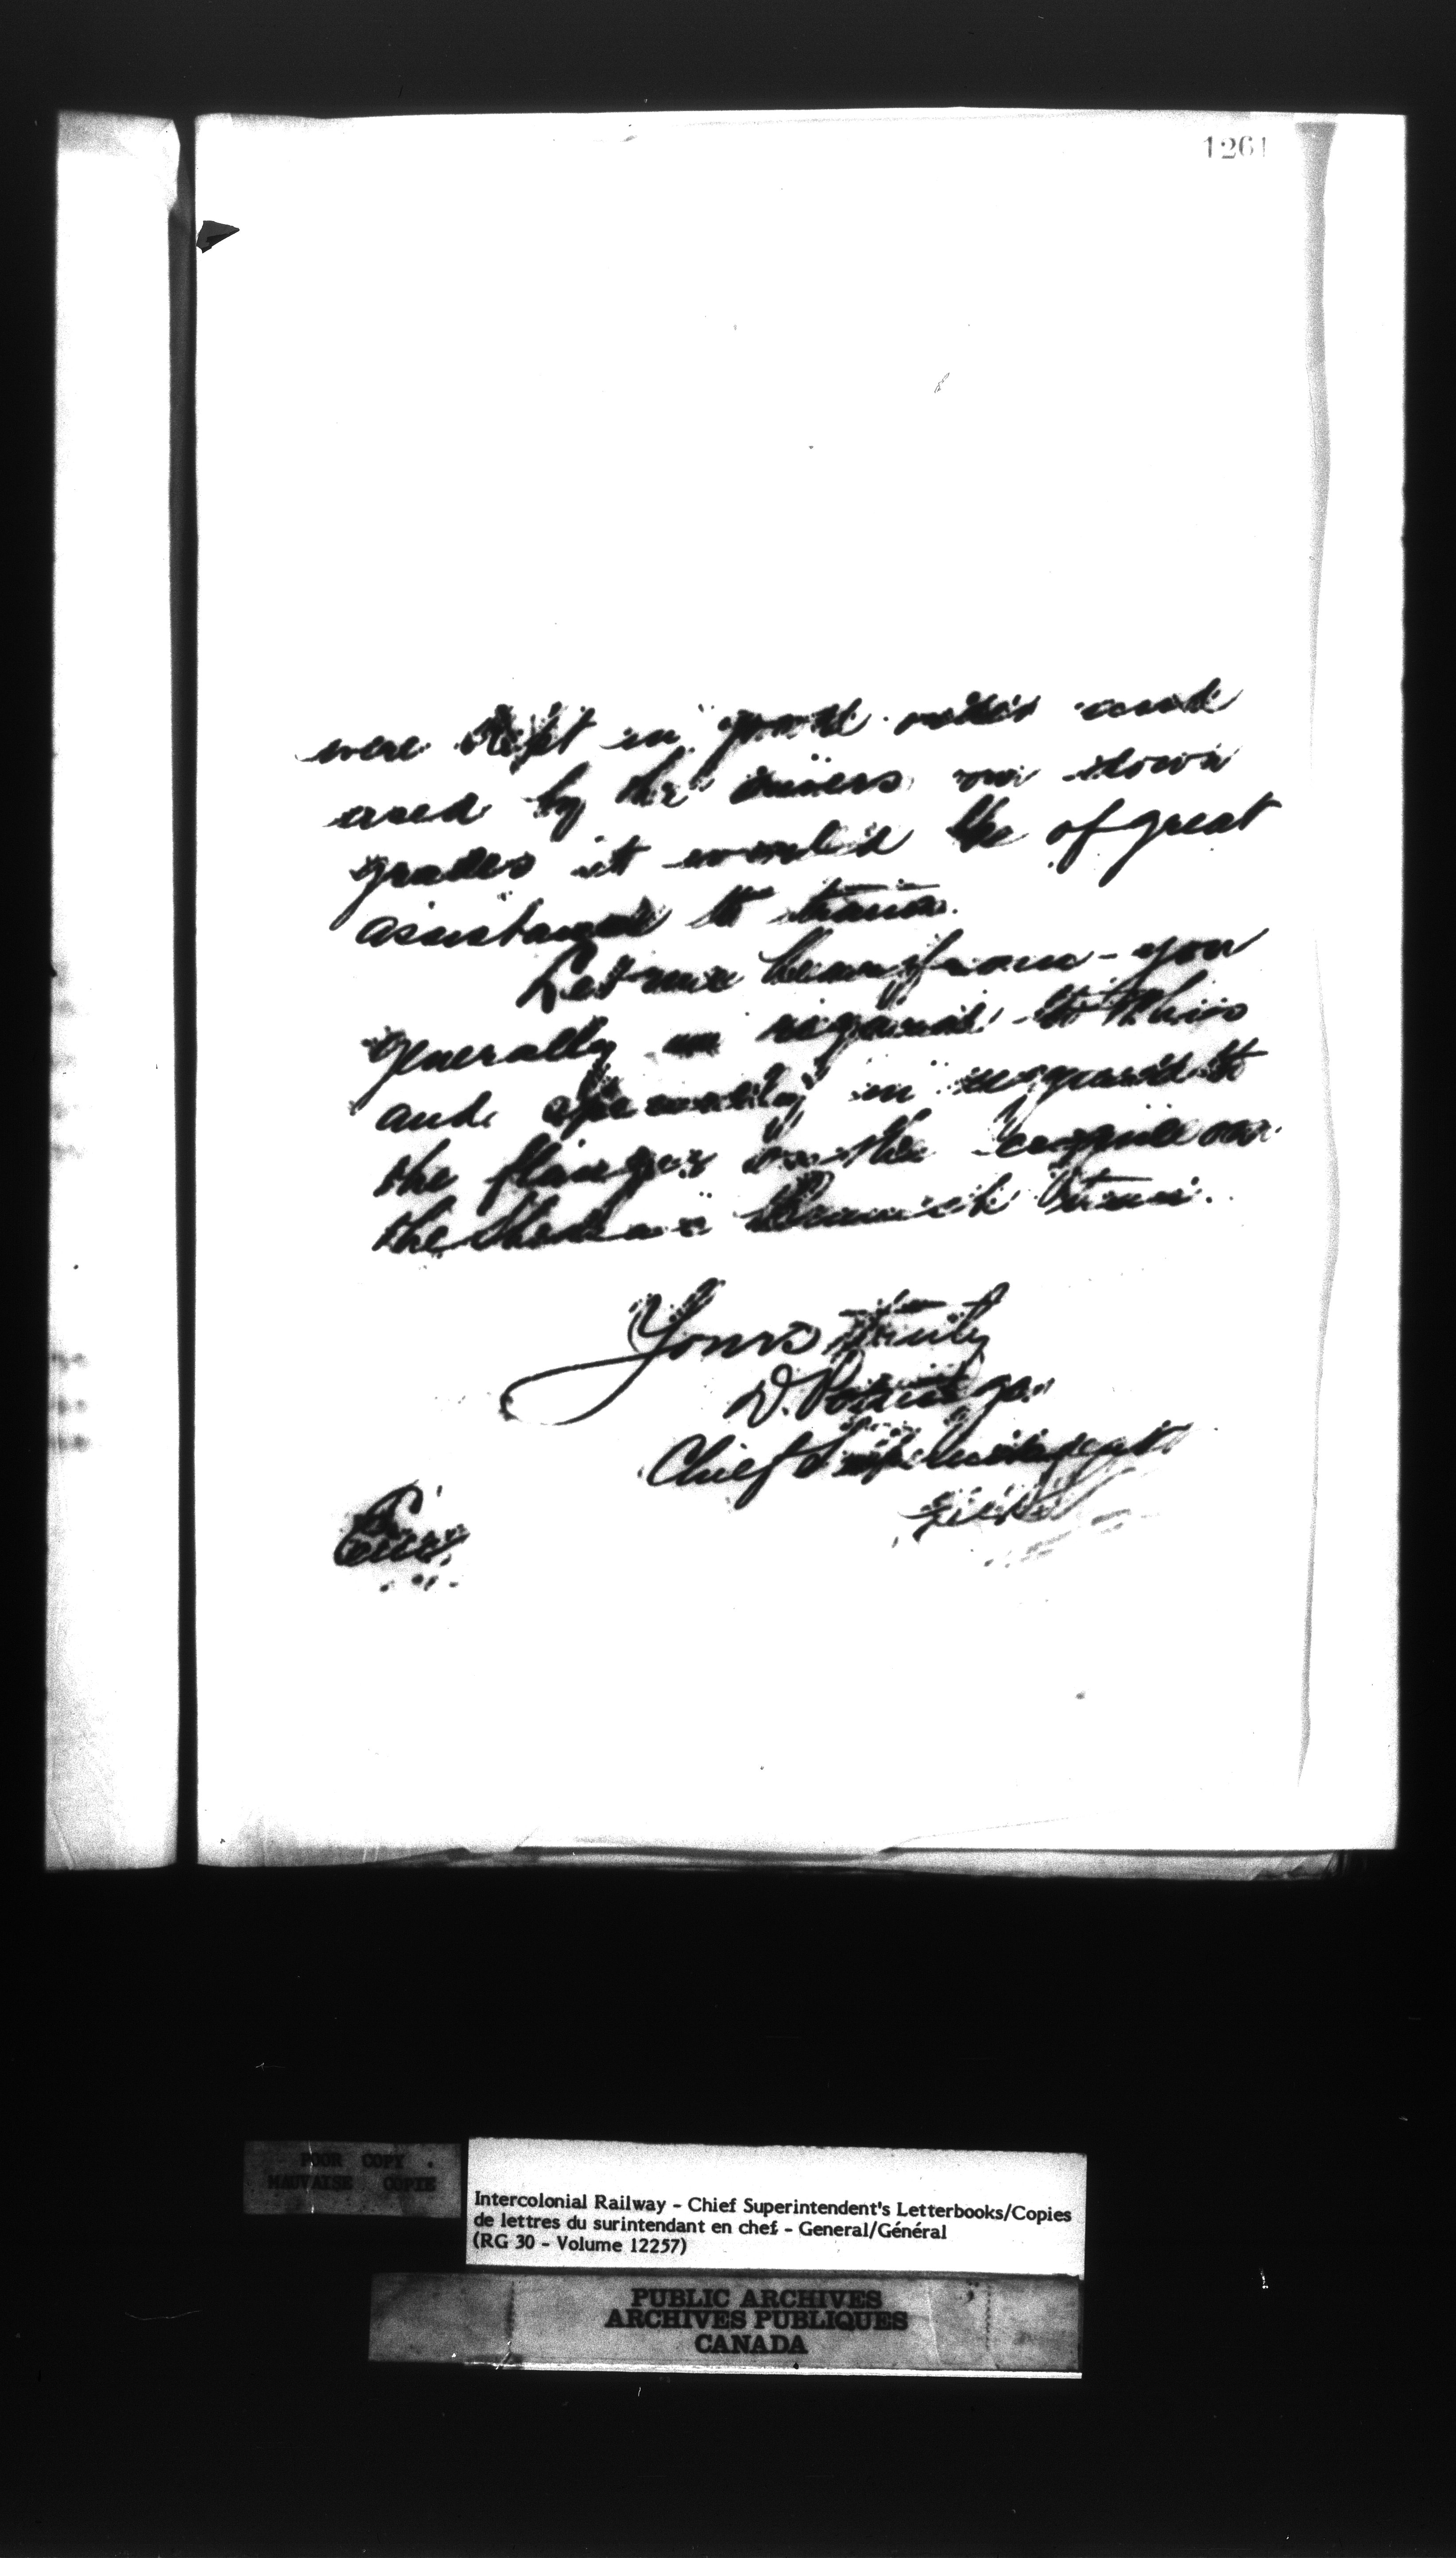 1261
were kept in good order and
used by the drivers on down
grades it would be of great
assistance to trains.
Let me hear from you
generally in regard to this
and specially in regard to
the flanges on the engine on
the Shediac Branch train.
Yours truly
D. Pottinger
Chief Superintendent
POOR COPY
MAUVAISE COPIE
Intercolonial Railway - Chief Superintendent's Letterbooks/Copies
de lettres du surintendant en chef - General/Général
(RG 30 - Volume 12257)
PUBLIC ARCHIVES
ARCHIVES PUBLIQUES
CANADA